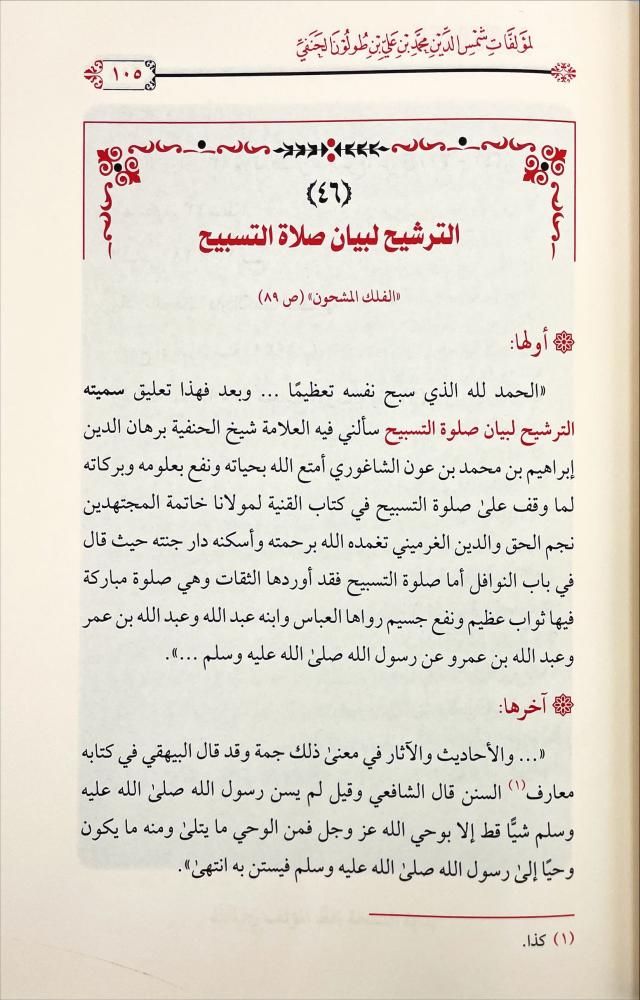 لمؤلفات شمس الدين محمد بن علي بن طولون الحنفي
١٠٥
(٤٦)
الترشيح لبيان صلاة التسبيح
«الفلك المشحون» (ص ٨٩)
أولها:
«الحمد لله الذي سبح نفسه تعظيمًا ... وبعد فهذا تعليق سميته
الترشيح لبيان صلوة التسبيح سألني فيه العلامة شيخ الحنفية برهان الدين
إبراهيم بن محمد بن عون الشاغوري أمتع الله بحياته ونفع بعلومه وبركاته
لما وقف علىٰ صلوة التسبيح في كتاب القنية لمولانا خاتمة المجتهدين
نجم الحق والدين الغرميني تغمده الله برحمته وأسكنه دار جنته حيث قال
في باب النوافل أما صلوة التسبيح فقد أوردها الثقات وهي صلوة مباركة
فيها ثواب عظيم ونفع جسيم رواها العباس وابنه عبد الله وعبد الله بن عمر
وعبد الله بن عمرو عن رسول الله صلىٰ الله عليه وسلم ...».
آخرها:
«... والأحاديث والآثار في معنىٰ ذلك جمة وقد قال البيهقي في كتابه
معارف(١) السنن قال الشافعي وقيل لم يسن رسول الله صلىٰ الله عليه
وسلم شيًّا قط إلا بوحي الله عز وجل فمن الوحي ما يتلىٰ ومنه ما يكون
وحيًا إلىٰ رسول الله صلىٰ الله عليه وسلم فيستن به انتهىٰ».
(١) كذا.